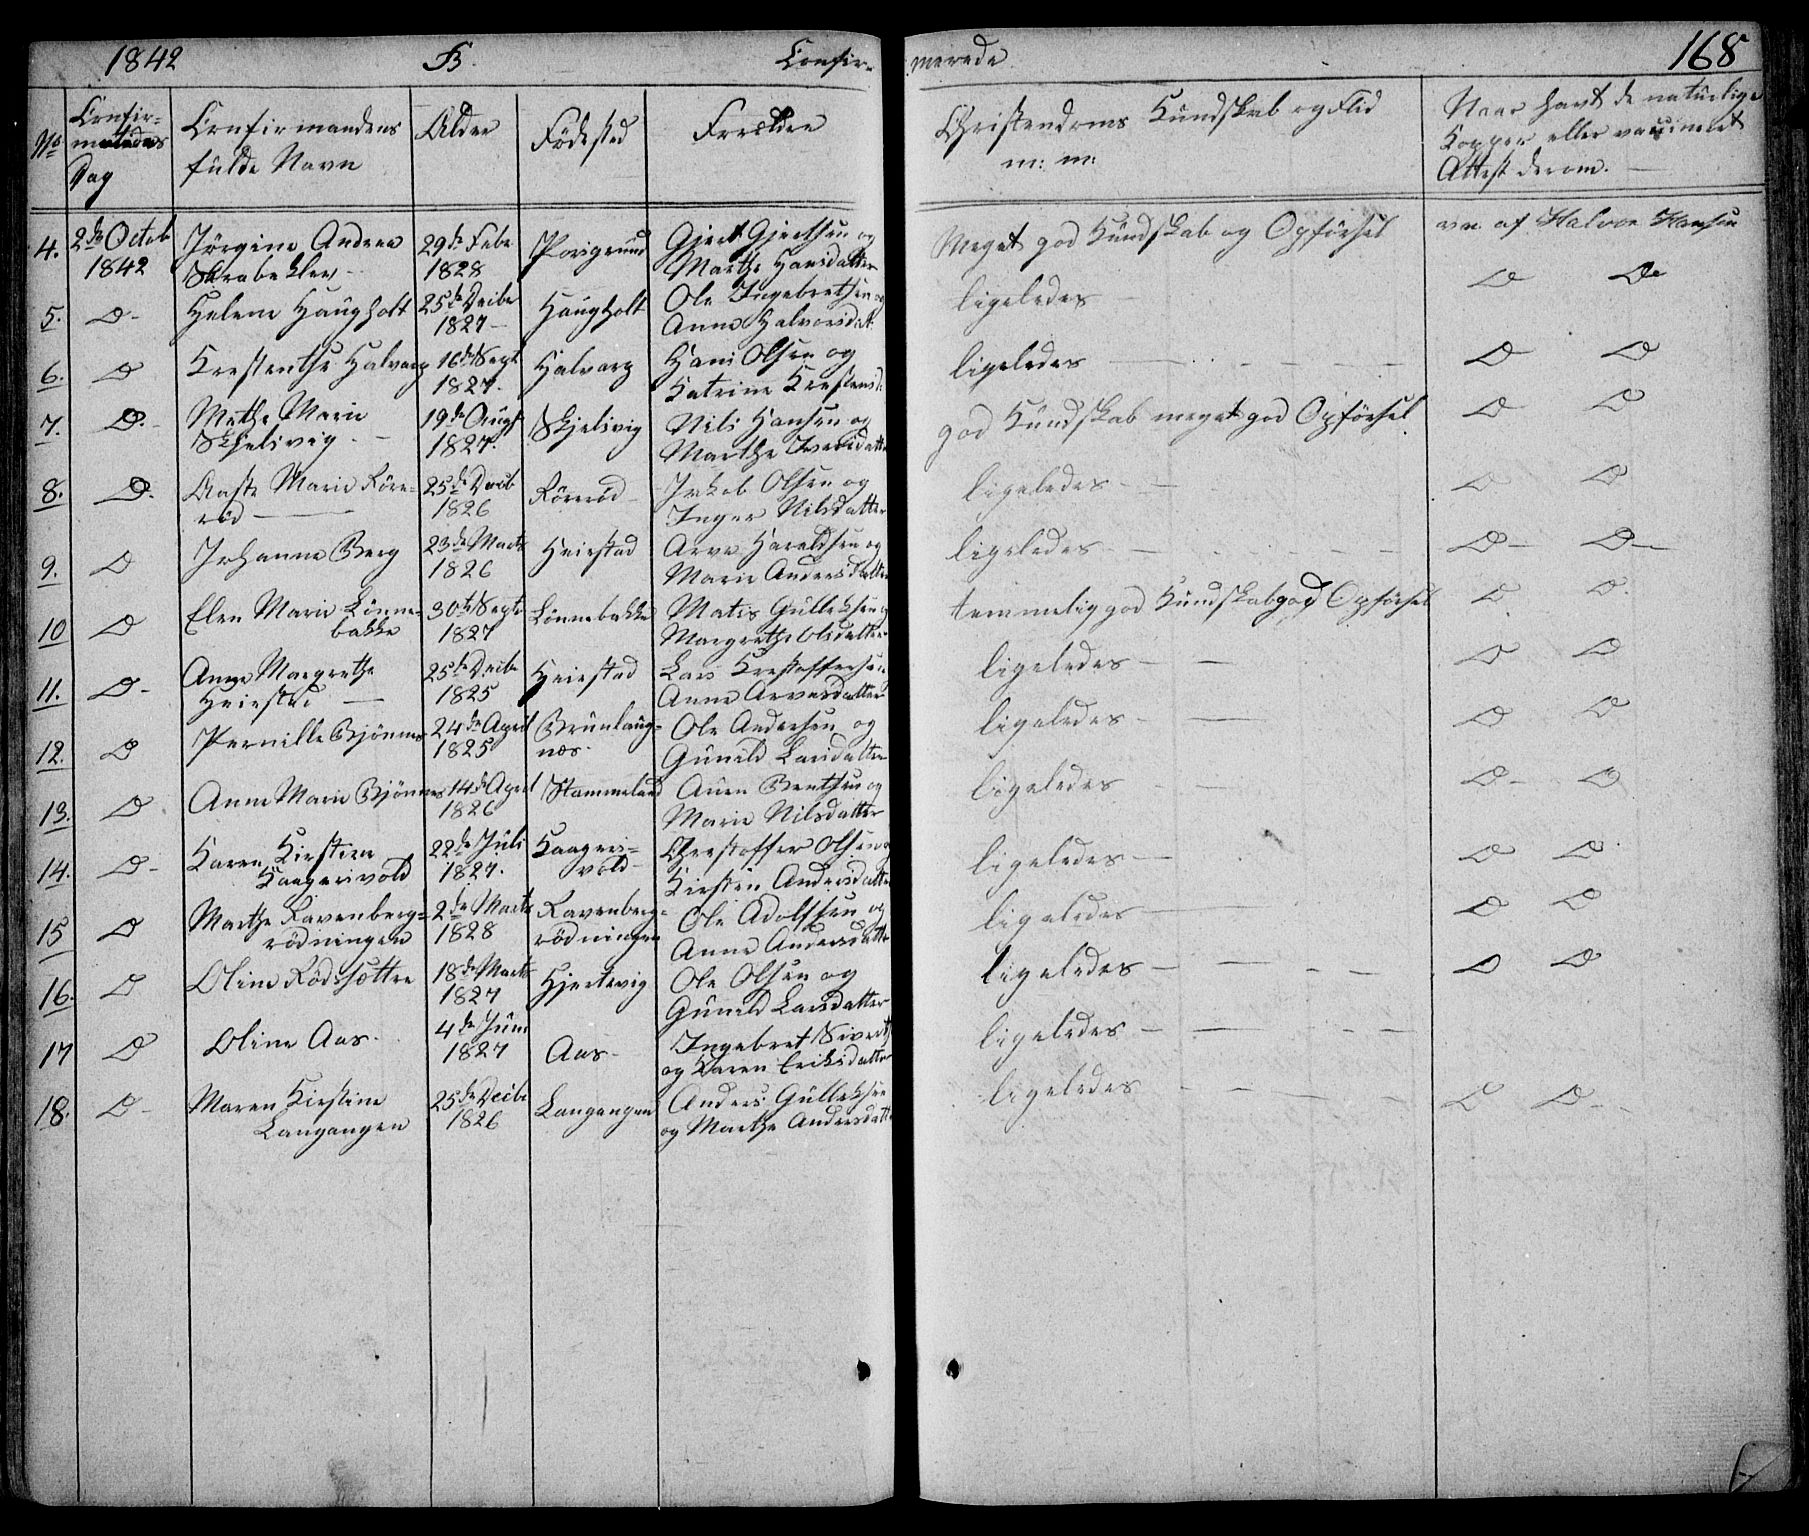 1842 B. Confir= merede 168
No Confir= mandens Dag
Confirmandens fulde Navn
Alder
Födested
Forældre
Christendoms Kundskab og Flid m: m:
Naar havt de naturlige Kopper eller vaccineret Attest derom.
4. 2de Octob 1842 Jörgine Andrea Skrabeklev 29de Febr 1828 Porsgrund Gjert Gjertsen og Marthe Hansdatter Meget god Kundskab og Opförsel va: af Halvor Hansen
5. D- Helene Haugholt 25de Decbr 1827 Haugholt Ole Ingebretsen og Anne Halvorsdat ligeledes D D
6. D Krestenthe Halvarp 16de Sept 1827. Halvarp Hans Olsen og Katrine Krestensd: ligeledes D D
7. D. Methe Marie Skjelsvig 19de Augst 1827. Skjelsvig Nils Hansen og Marthe Iversdatter god Kundskab meget god Opförsel D D
8. D. Aaste Marie Röre= röd 25de Decb 1826 Röreröd Jakob Olsen og Inger Nilsdatter ligeledes D D
9. D Johanne Berg 23de Marts 1826 Heirstad Arve Haraldsen og Marie Andersdatter ligeledes D D
10 D Elen Marie Lönne= bakke 30te Septr 1827 Lönnebakke Matis Gulleksen og Margrethe Olsdatter temmelig god Kundskab god Opförsel D D
11. D- Anne Margrethe Heirstad 25de Decbr 1825 Heirstad Lars Krestoffersen Anne Arvesdatter ligeledes D D
12. D Pernille Bjönnes 24de April 1825 Brunlaug= næs Ole Andersen og Gunild Larsdatter ligeledes D D
13. D Anne Marie Bjönnes 14de April 1826 Stammeland Auen Bentsen og Marie Nilsdatter ligeledes D D
14. D- Karen Kirstine Kaagersvold 22de Juli 1827. Kaagers= vold Chrestoffer Olsen og Kirsten Andersdatter ligeledes D D
15 D Marthe Ravenberg= rödningen 2de Marts 1828 Ravenberg= rödningen Ole Adolfsen og Anne Andersdatter ligeledes D D
16. D Oline Rödssættre 18de Marts 1827 Hjertvig Ole Olsen og Gunild Larsdatter ligeledes D D
17 D Oline Aas. 4de Juni 1827 Aas Ingebret Sivert og Karen Eriksdatter ligeledes
18. D- Maren Kirstine Langangen 25de Decbr 1826 Langangen Anders Gulleksen og Marthe Andersdatt ligeledes D D